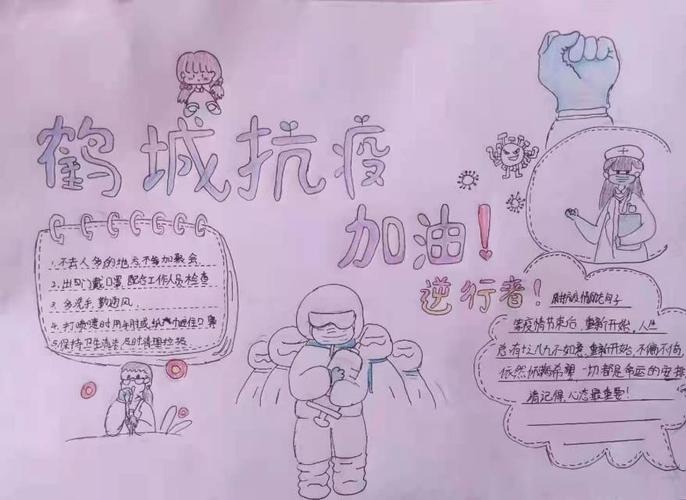 鹤城抗疫
加油！
逆行者！
1.不去人多的地点不参加聚会
2.出门戴口罩,配合工作人员检查
3.多洗手,勤通风
4.打喷嚏时用手肘或纸巾遮住口鼻
5.保持卫生清洁及时清理垃圾
等疫情节束后,重新开始,人生
总有十之八九不如意,重新开始,不偏不倚,
依然怀揣希望一切都是命运的安排
请记得,心态最重要!